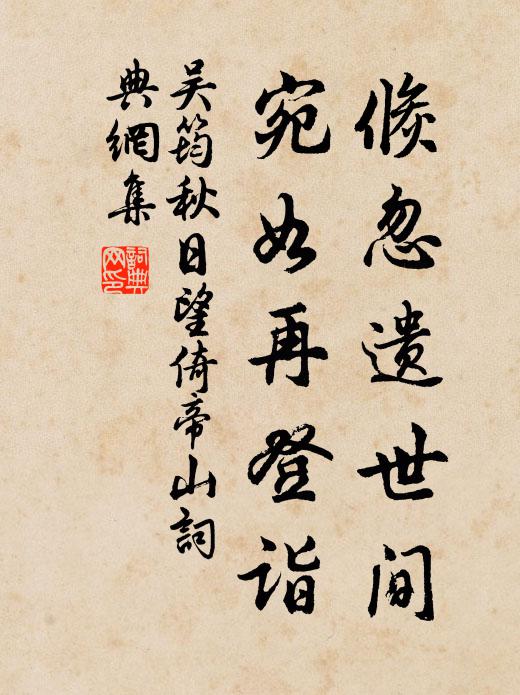 倏忽遗世间
宛如再登诣
吴筠秋日望倚帝山詞
典網集
詞典網印